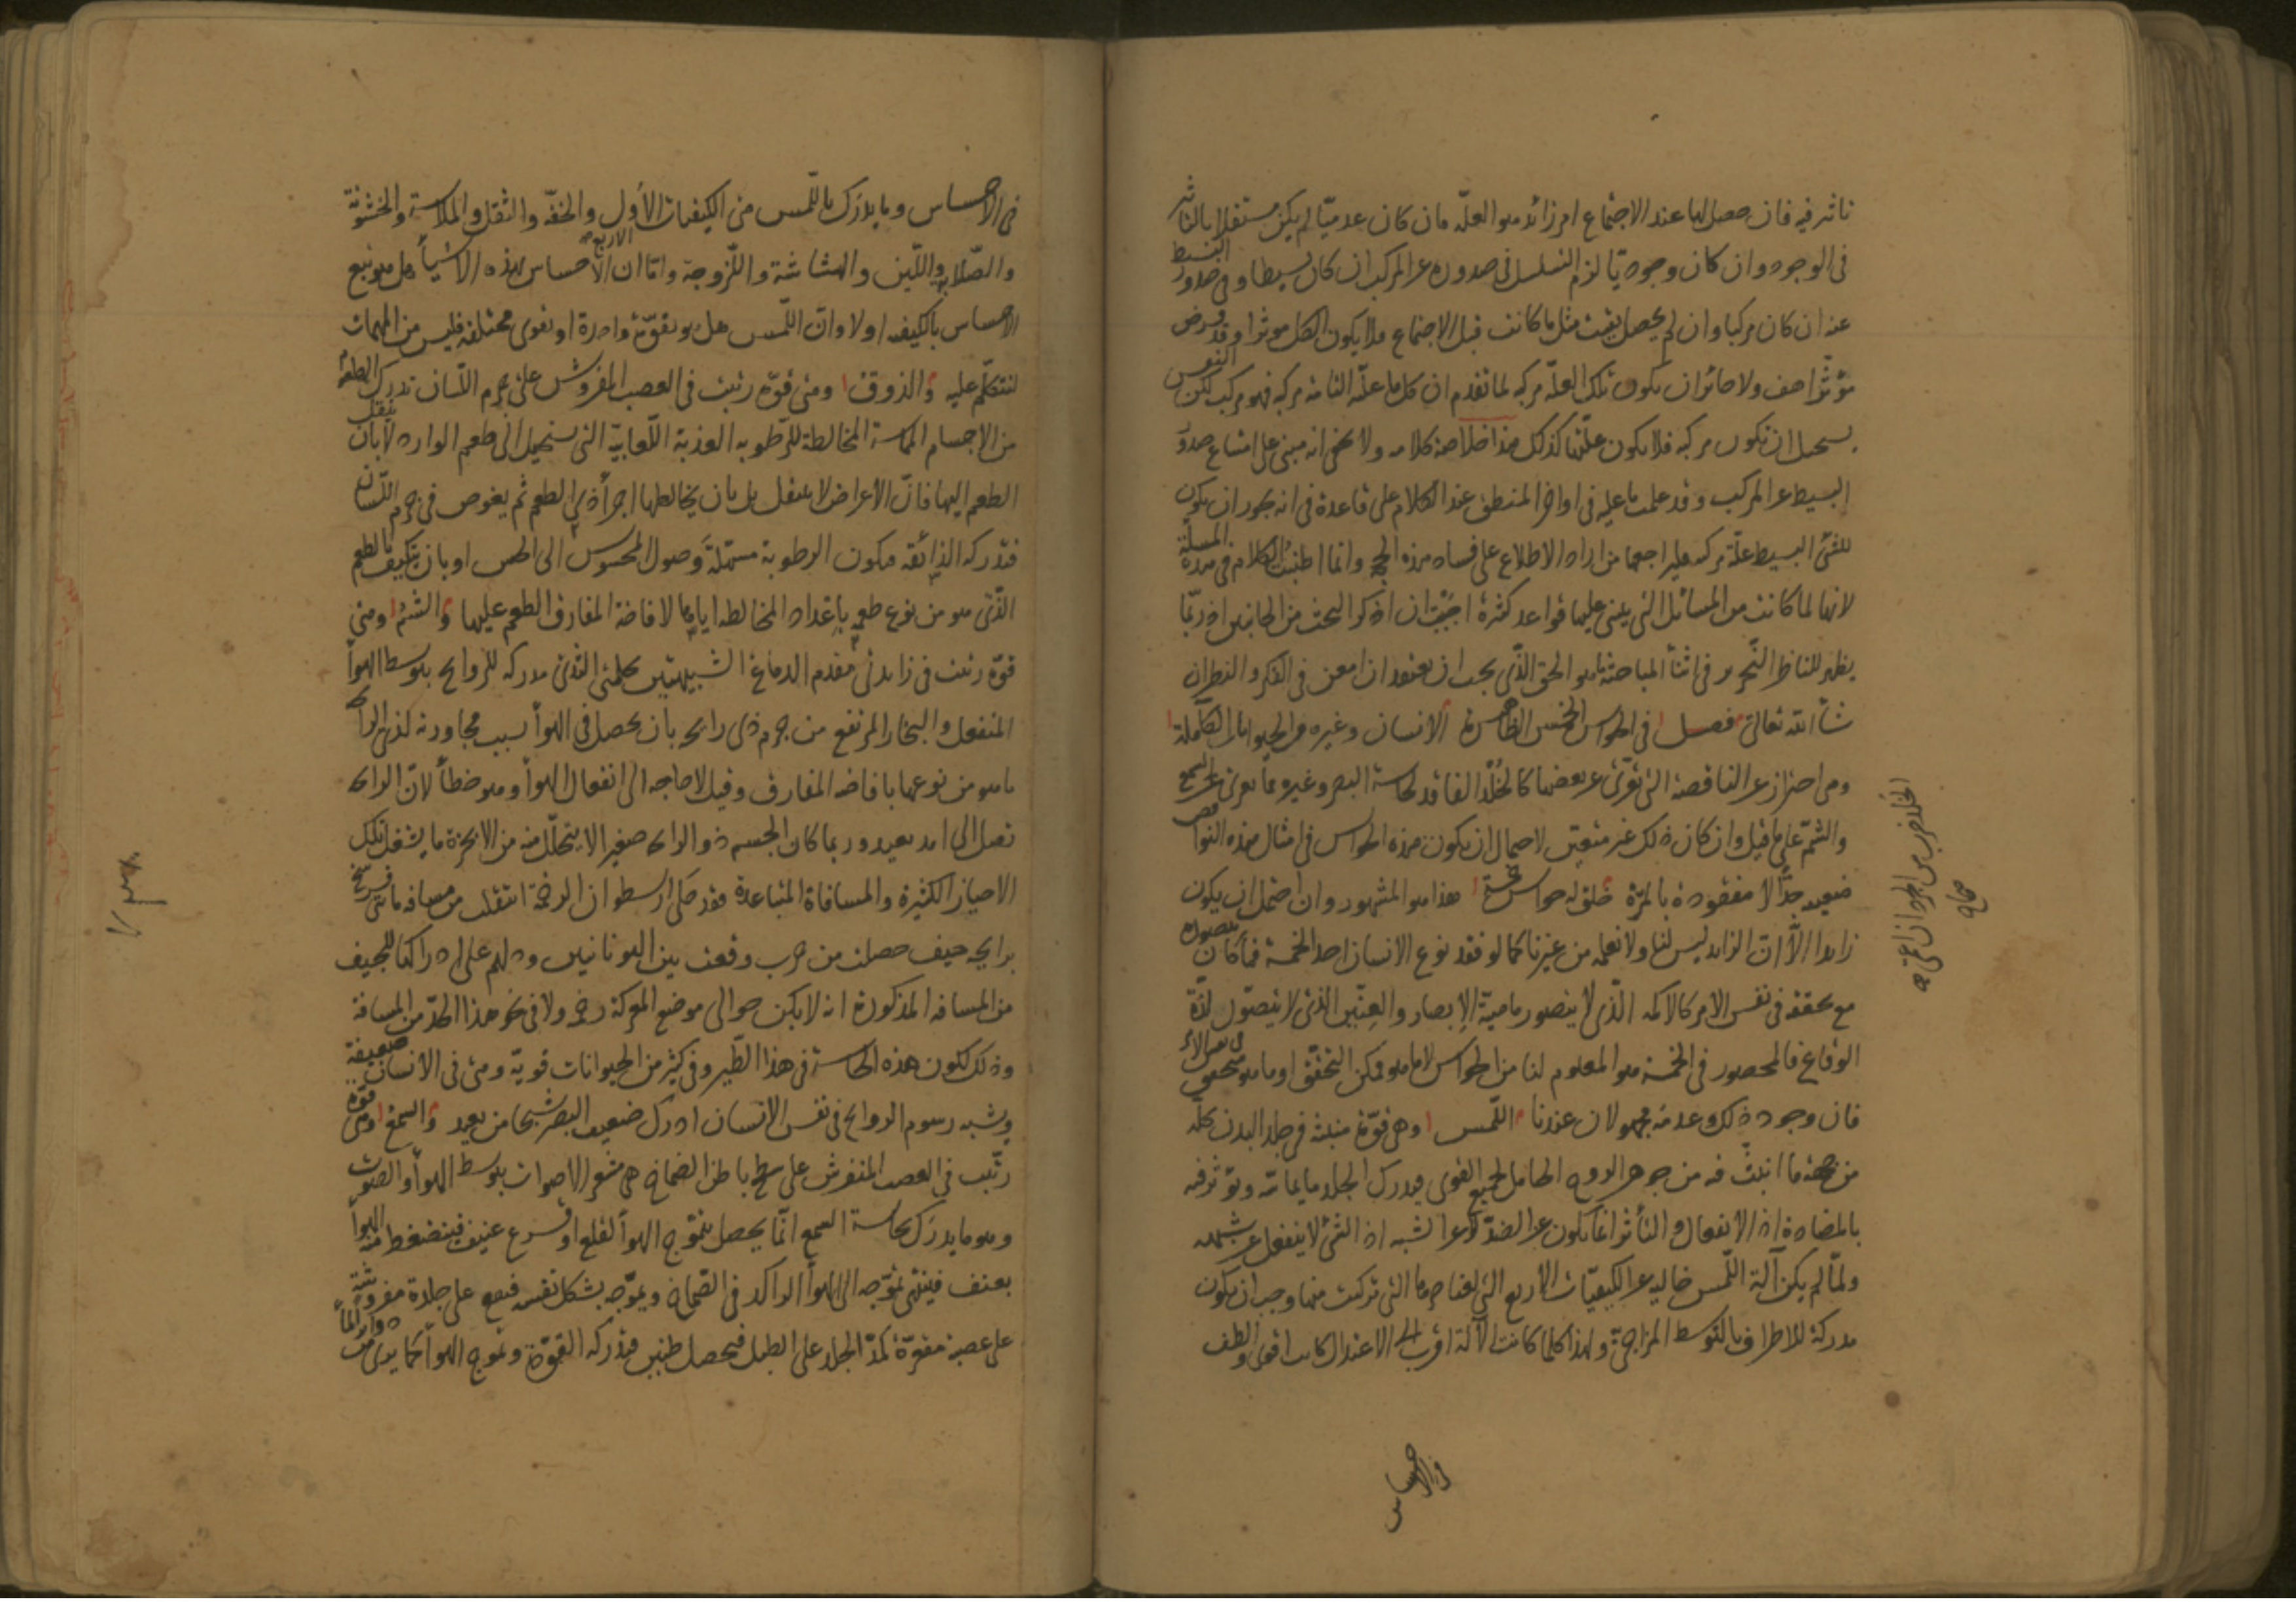 تاثير فيه فان حصل لها عند الاجتماع امر زائد هو العلة فان كان عدميّا لم يكن مستقلا بالتاثير
فى الوجود وان كان وجوديّا لزم التسلسل فى صدوره عن المركب ان كان بسيطا وفى صدور البسيط
عنه ان كان مركبا وان لم يحصل بقيت مثل ما كانت قبل الاجتماع فلا يكون الكل موثرا وقد فرض
مؤثرا هف ولا جائز ان يكون تلك العلّة مركبه لما تقدم ان كل ما علّته التامة مركبه فهو مركب لكن النفوس
يستحيل ان تكون مركبه فلا يكون علّتها كذلك هذا خلاصة كلامه ولا يخفى انه مبنى على امتناع صدور
البسيط عن المركب وقد علمت ما عليه فى اواخر المنطق عند الكلام على قاعدة فى انه يجوز ان يكون
للشئ البسيط علّة مركبه فليراجعها من اراد الاطلاع على فساد هذه الحجج وانما اطنبت الكلام فى هذه المسلة
لانها لما كانت من المسائل التى يبنى عليها قواعد كثيرة احببت ان اذكر البحث من الجانبين اذ ربّما
يظهر للناظر النحرير فى اثنأ المباحثة ما هو الحق الذّى يجب ان يعتقد ان امعن فى الفكر والنظر ان
شأ الله تعالى فصل فى الحواس الخمس الظاهرة الانسان وغيره من الحيوانات الكاملة
وهى احتراز عن الناقصة التى تعرّى عن بعضها كالخُلْد الفاقد لحاسة البصر وغيره مما يعرى عن السمع
والشمّ على ما قيل وان كان ذلك غير متيقن لاحتمال ان يكون هذه الحواس فى امثال هذه النواقص
ضعيفه جدّاً لا مفقودة بالمرّة خلق له حواس خمسة هذا هو المشهور وان احتمل ان يكون
زايدا الّا ان الزايد ليس لنا ولا نعلمه من غيرنا كما لو فقد نوع الانسان احد الخمسة فما كان يتصوره
مع تحققه فى نفس الامر كالاكمه الّذى لا يتصور ماهيّة الابصار والعِنّين الذى لا يتصوّر لذّة
الوقاع فالمحصور فى الخمسة هو المعلوم لنا من الحواس لا ما هو ممكن التحقق او ما هو متحقق فى نفس الامر
فان وجود ذلك وعدمه مجهولان عندنا اللّمس وهى قوّة منبثه فى جلد البدن كلّه
من جهة ما انبثّ فيه من جوهر الروح الحامل لجميع القوى فيدرك الجلد ما يماسّه ويؤثر فيه
بالمضادة اذ الانفعال والتأثر انما يكون عن الضدّ لا عن الشبه اذ الشئ لا ينفعل عن شبهه
ولمّا لم يكن آلة اللّمس خاليه عن الكيفيّات الاربع التى لعناصرها التى تركبت منها وجب ان يكون
مدركة للاطراف بالتوسط المزاجىّ ولهذا كلما كانت الآلة اقرب الى الاعتدال كانت اقوى والطف
فى الاحساس
الخلد ضرب من الجرذان اعمى
صحاح
فى الاحساس وما يدرك باللّمس من الكيفيات الأول والخفّه والثقل والملاسة والخشونة
والصّلابه واللّين والهشاشة واللّزوجة وامّا ان الاحساس بهذه الاشيأ هل هو تبع
الاربع
الاحساس بالكيفيه اولا وانّ اللّمس هل هو بقوّة واحدة او بقوى مختلفه فليس من المهمات
لنتكلّم عليه والذوق وهى قوّة رتبت فى العصب المفروش على جرم اللّسان تدرك الطعوم
من الاجسام المماسة المخالطة للرّطوبه العذبة اللّعابيّة التى يستحيل الى طعم الوارد لا بان ينتقل
الطعم اليها فانّ الأعراض لا ينتقل بل بان يخالطها اجزأ ذى الطعم ثم يغوص فى جرم اللّسان
فتدركه الذائقه فيكون الرطوبة مسهلة وصول المحسوس الى الحس او بان يتكيف بالطعم
الّذى هو من نوع طعمه باعداد المخالطه اياها لافاضة المفارق الطعم عليها والشمّ وهى
قوّة رتبت فى زايدتى مقدم الدماغ الشبيهتين بحلمتى الثدى مدركه للروايح بتوسط الهوأ
المنفعل والبخار المرتفع من جرم ذى رايحه بان يحصل فى الهوأ بسبب مجاورته لذى الرايحه
ما هو من نوعها بافاضه المفارق وقيل لا حاجه الى انفعال الهوأ وهو خطأ لانّ الرايحه
تصل الى امد بعيد وربما كان الجسم ذو الرايحه صغير الا يتحلّل منه من الابخرة ما يشغل تلك
الاحياز الكثيرة والمسافاة المتباعدة فقد حكى ارسطو ان الرخمة انتقلت من مسافه مأتى فرسخ
برايحه جيف حصلت من حرب وقعت بين اليونانيين ودلهم على ادراكها للجيف
من المسافه المذكورة انه لا يكن حوالى موضع المعركة رخم ولا فى نحو هذا الحدّ من المسافة
وذلك لكون هذه الحاسة فى هذا الطّير وفى كثير من الحيوانات قويّة وهى فى الانسان ضعيفة
ويشبه رسوم الروايح فى نفس الانسان ادرك ضعيف البصر شبحا من بعيد والسمع وهى قوّة
رتّبت فى العصب المنفرش على سطح باطن الصّماخ هى مشعر الاصوات بتوسط الهوأ والصوت
وهو ما يدرك بحاسة السمع انّما يحصل بتموّج الهوأ لقلع او قرع عنيف فينضغط منه الهوأ
بعنف فينتهى تموّجه الى الهوأ الراكد فى الصّماخ ويموّجه بشكل نفسه فيقع على جلدة مفروشة
على عصبة مقعّرة كمدّ الجلد على الطبل فيحصل طنين فيدركه القوّة وتموج الهوأ كما يرى من دواير المأ